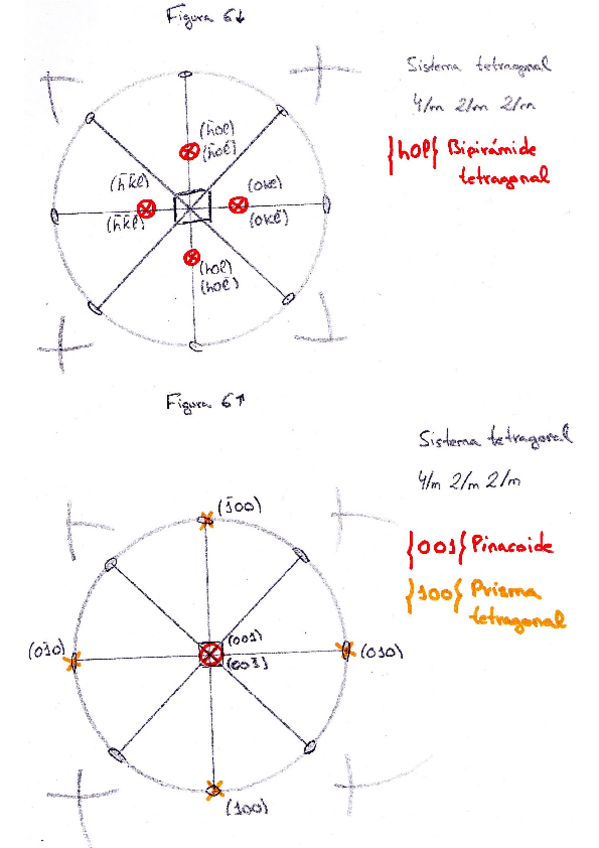 Figura 6↓
Sistema tetragonal
4/m 2/m 2/m
{h0l} Bipirámide
tetragonal
(h̄0l)
(h̄0l̄)
(h̄k̄l)
(h̄k̄l̄)
(0kl)
(0kl̄)
(h0l)
(h0l̄)
Figura 6↑
Sistema tetragonal
4/m 2/m 2/m
{001} Pinacoide
{100} Prisma
tetragonal
(1̄00)
(01̄0)
(001)
(001̄)
(010)
(100)